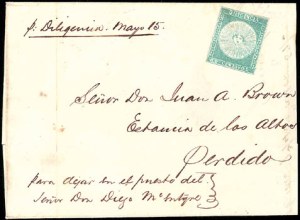 pr. Diligencia. Mayo 15.
Señor Don Juan A. Brown
Estancia de las Altos
Perdido
Para dejar en el puesto del
Señor Don Diego McEntyre